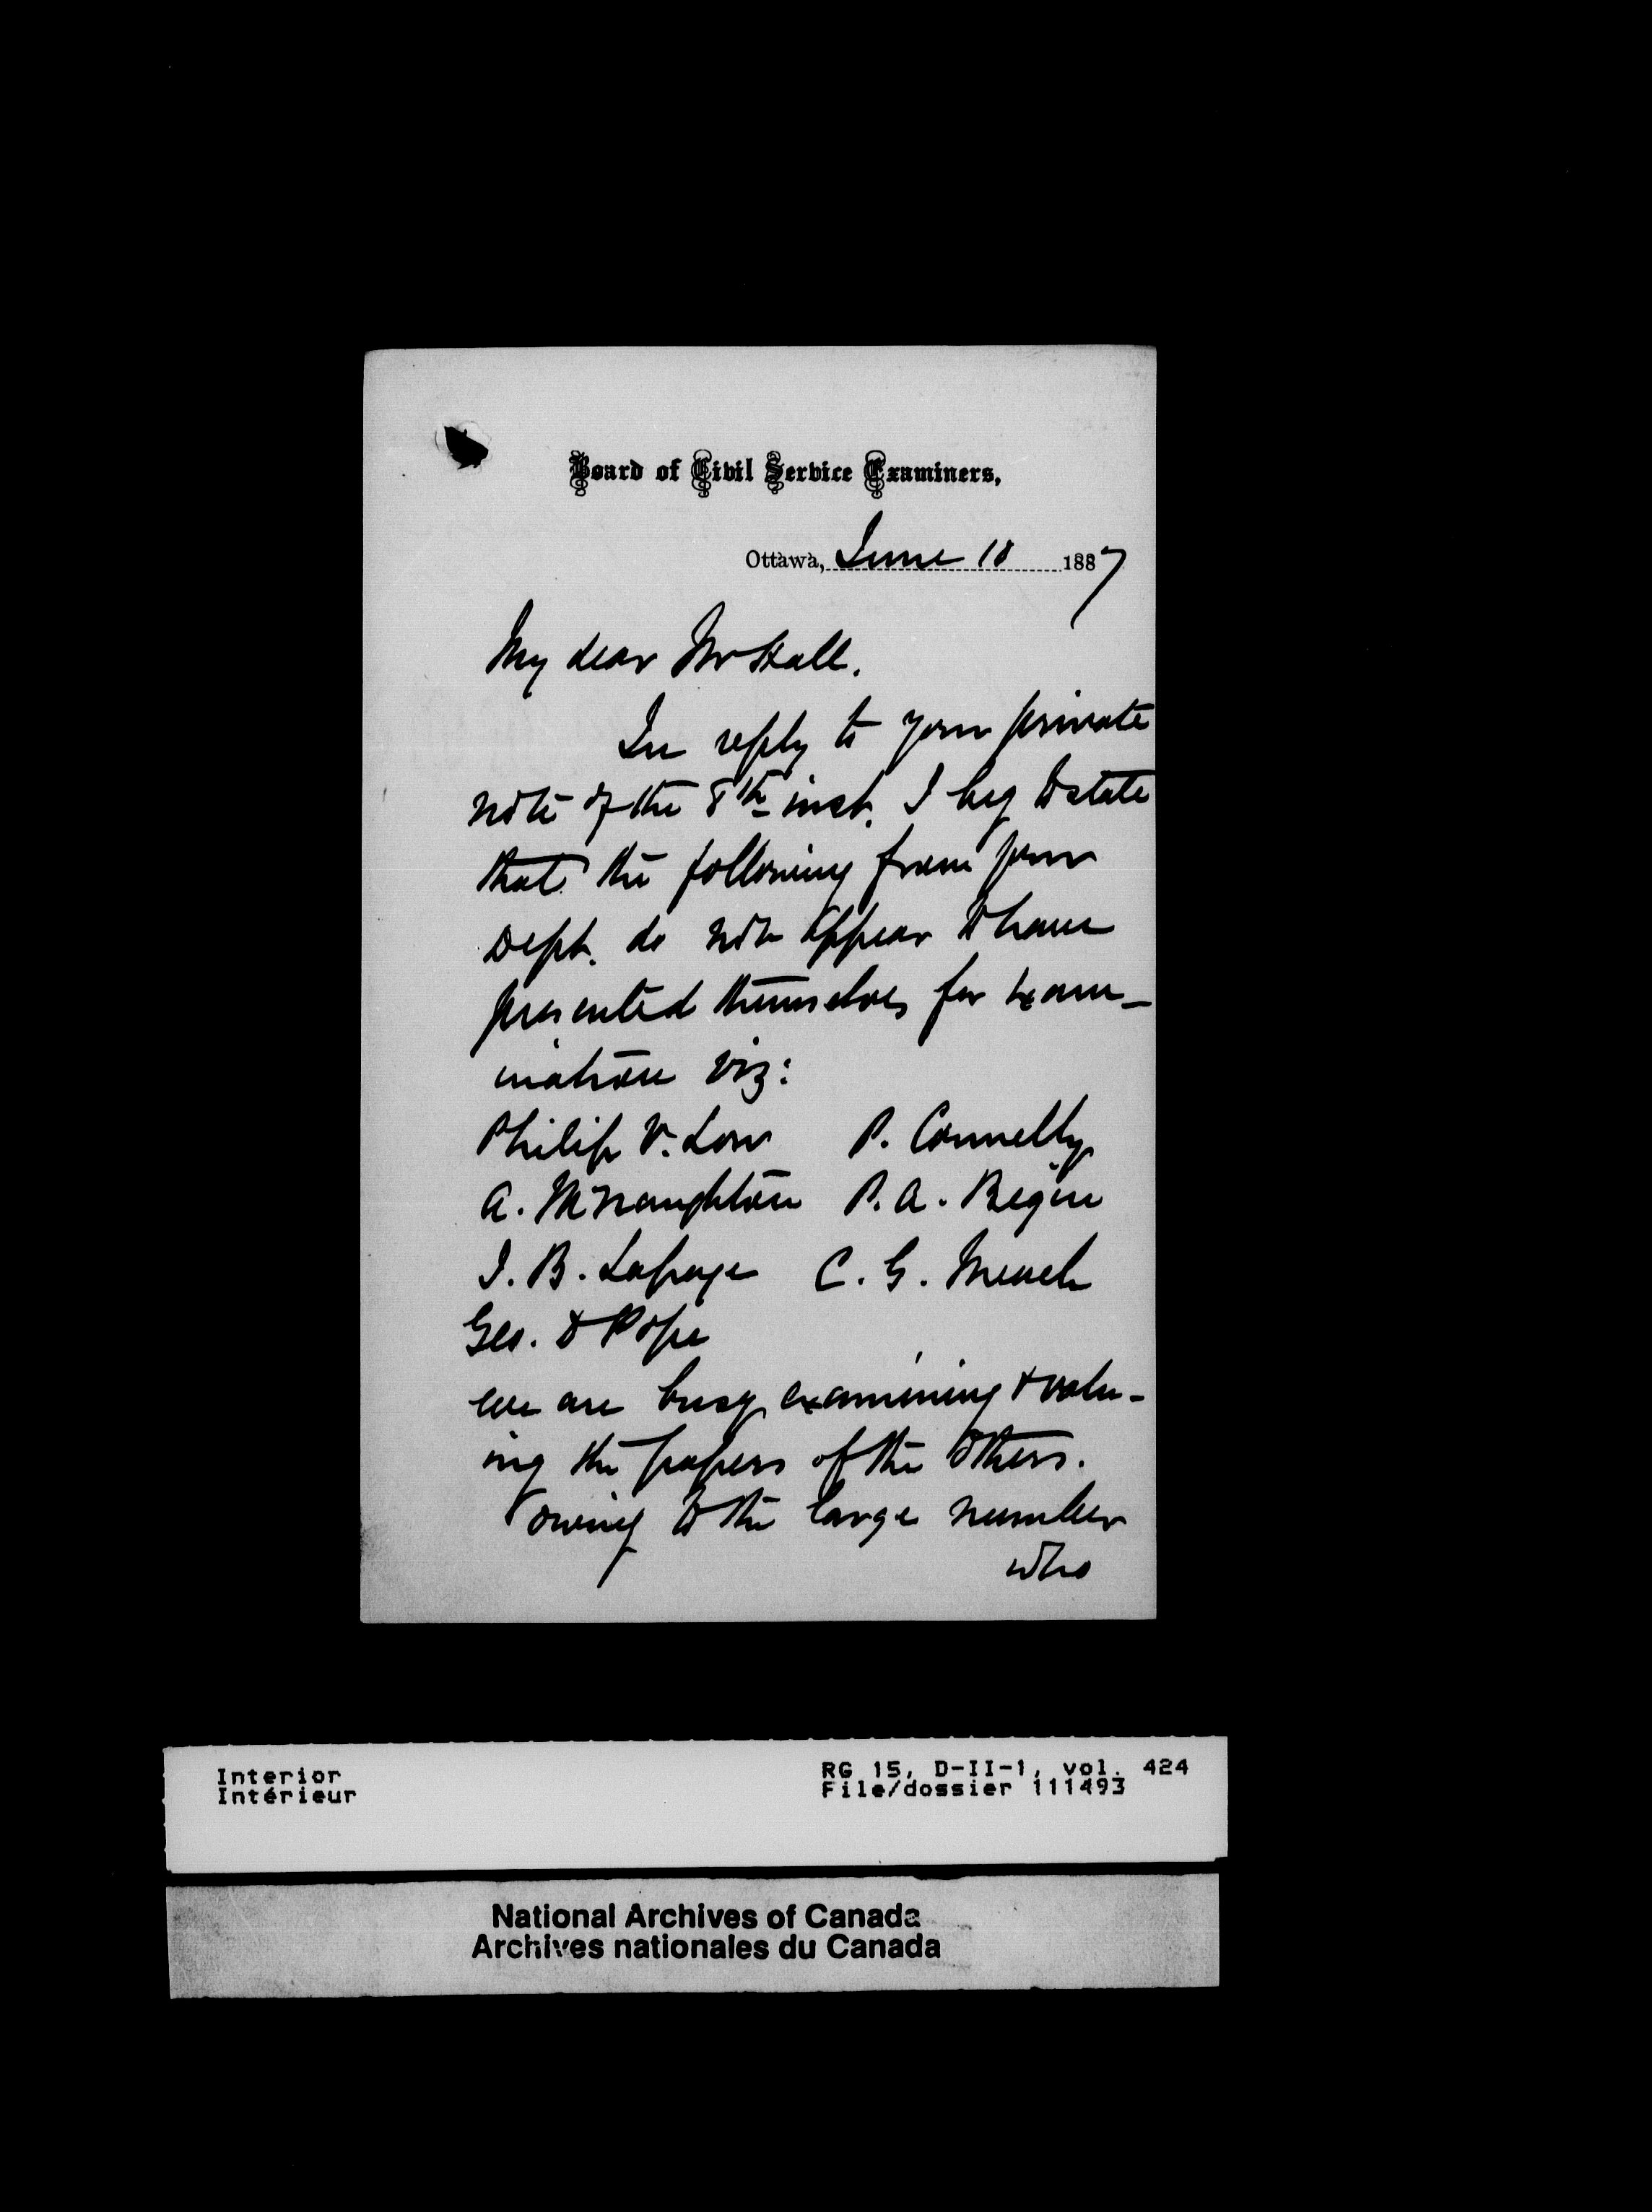 Board of Civil Service Examiners,
Ottawa, June 10 1887
My dear Mr Hall.
In reply to your private
note of the 8th inst. I beg to state
that the following from your
Dept. do not appear to have
presented themselves for exam-
ination viz:
Philip V. Low P. Connelly
A. McNaughton P. A. Begin
J. B. Lapage C. G. Meach
Geo. D Pope
we are busy examining & valu-
ing the papers of the others.
owing to the large number
who
Interior RG 15, D-II-1, vol. 424
Intérieur File/dossier 111493
National Archives of Canada
Archives nationales du Canada